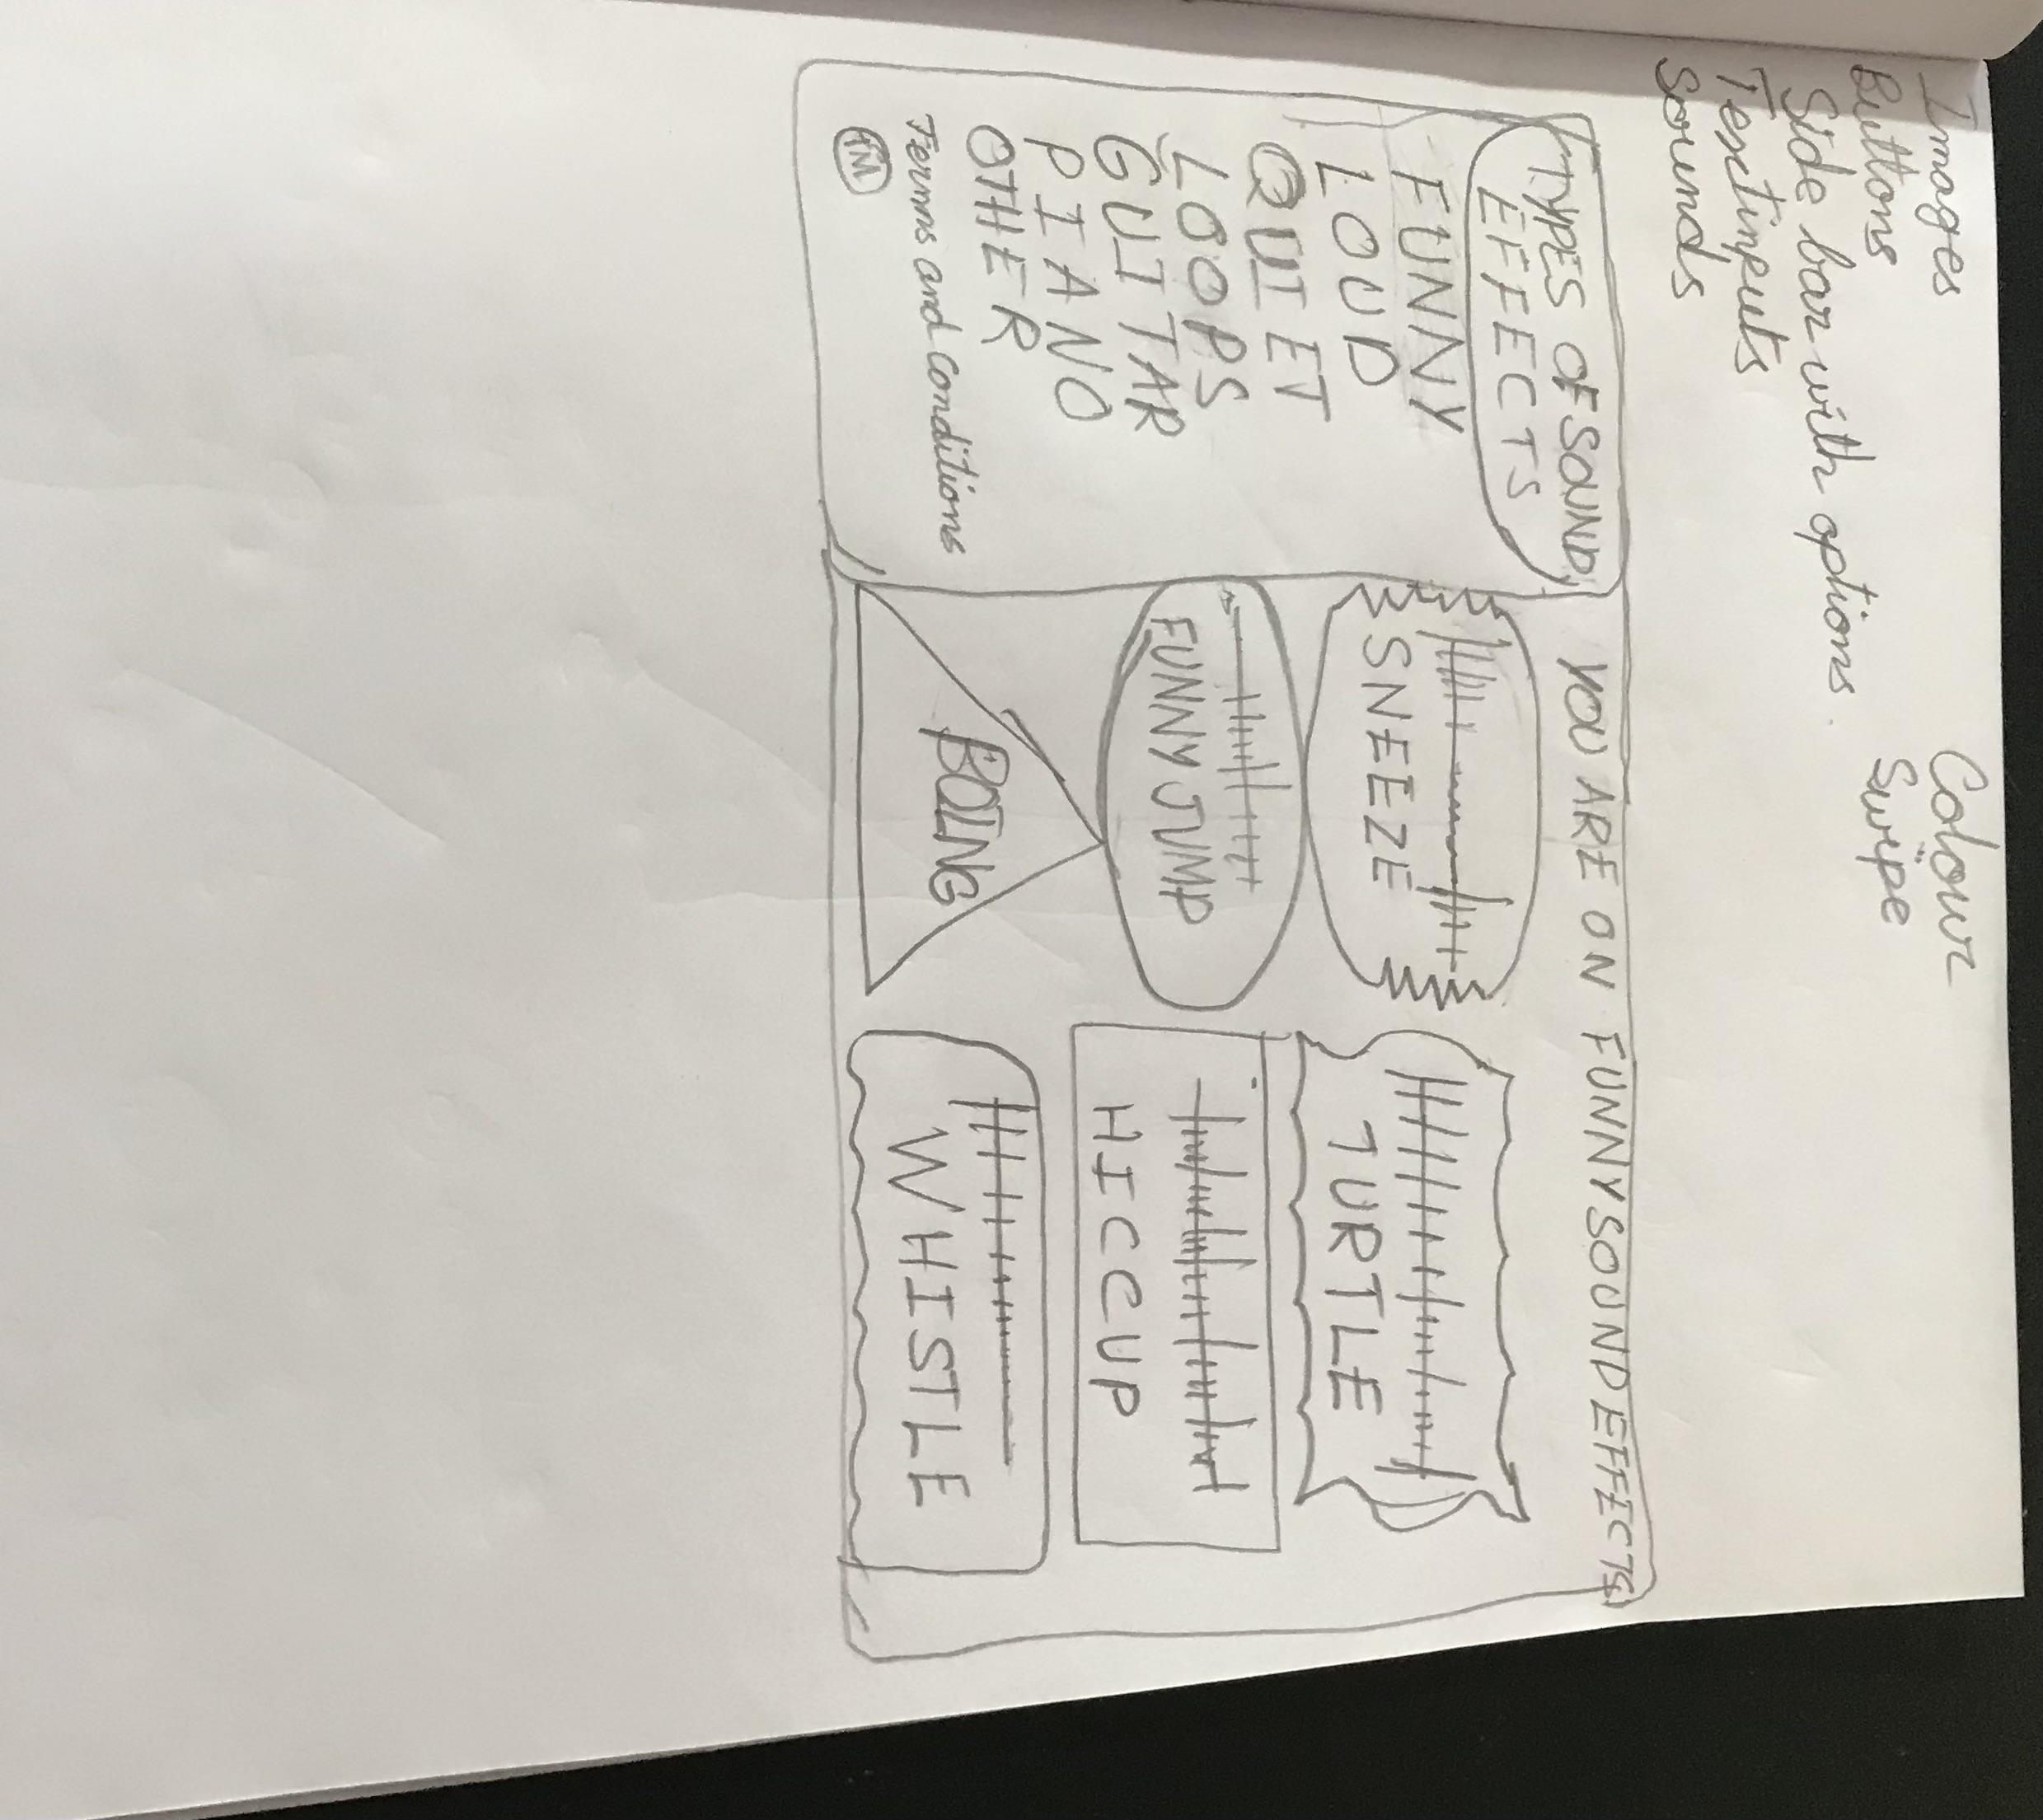 Images
Buttons
Side bar with options
Textinputs
Sounds
Colour
Swipe
TYPES OF SOUND
EFFECTS
FUNNY
LOUD
QUIET
LOOPS
GUITAR
PIANO
OTHER
Terms and Conditions
TM
YOU ARE ON FUNNY SOUND EFFECTS
SNEEZE
TURTLE
FUNNY JUMP
HICCUP
BOING
WHISTLE